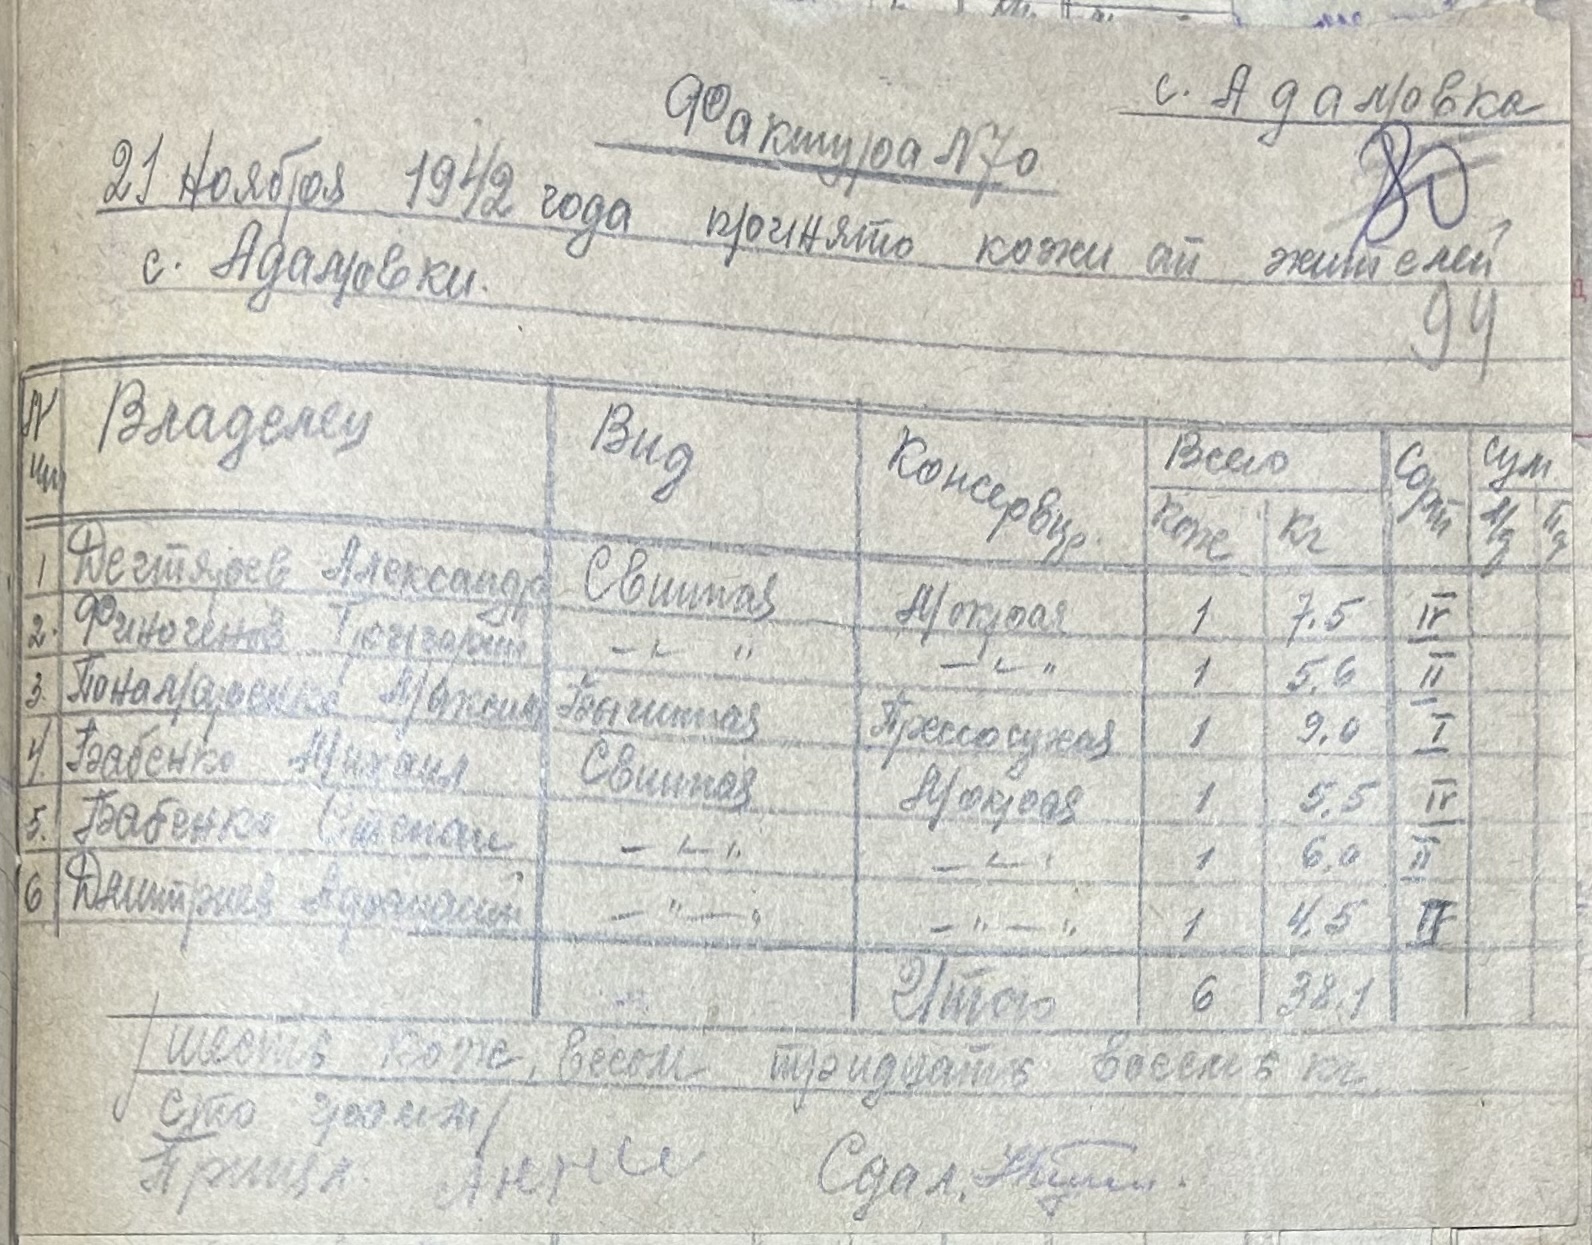 с. Адамовка
Фактура N 70
80
21 Ноября 1942 года принято кожи от жителей
с. Адамовки.
94
N Владелец Вид Консервир. Всего Сорт Сум
Кож Кг
1 Дегтярев Александр Свинная Мокрая 1 7.5 IV
2. Финогенов Григорий –"– " –"– " 1 5,6 II
3. Понамаренко Максим Бычинная Прессосухая 1 9.0 I
4. Бабенко Михаил Свинная Мокрая 1 5,5 IV
5. Бабенко Степан –"– " –"– " 1 6,0 II
6 Дмитриев Афанасий – " – " – " – " 1 4,5
Итого 6 38,1
/шесть кож, весом тридцать восемь кг.
сто грамм/
Принял. Сдал.